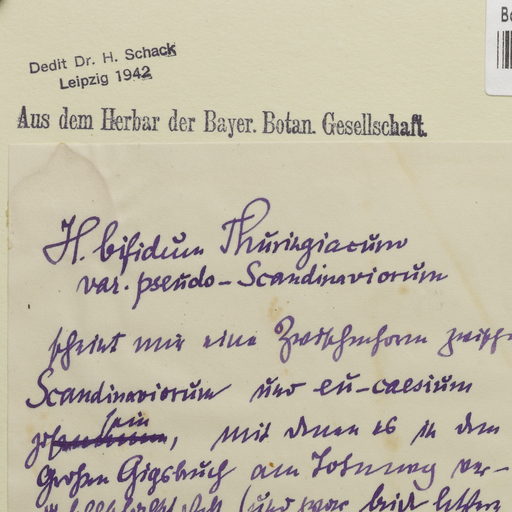 Bo
Dedit Dr. H. Schack
Leipzig 1942
Aus dem Herbar der Bayer. Botan. Gesellschaft.
H. bifidum Thuringiacum
var. pseudo-Scandinaviorum
scheint mir eine Zwischenform zwisch
Scandinaviorum und eu-caesium
zu sein, mit denen es in dem
großen Gipsbruch am ver-
(und zwar beide letzten